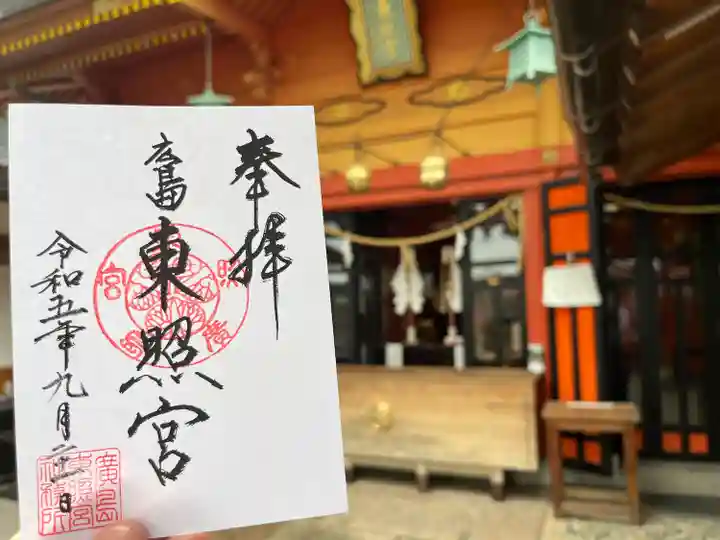 奉拝
広島
東照宮
令和五年九月二十二日
廣島
東照宮
社務所